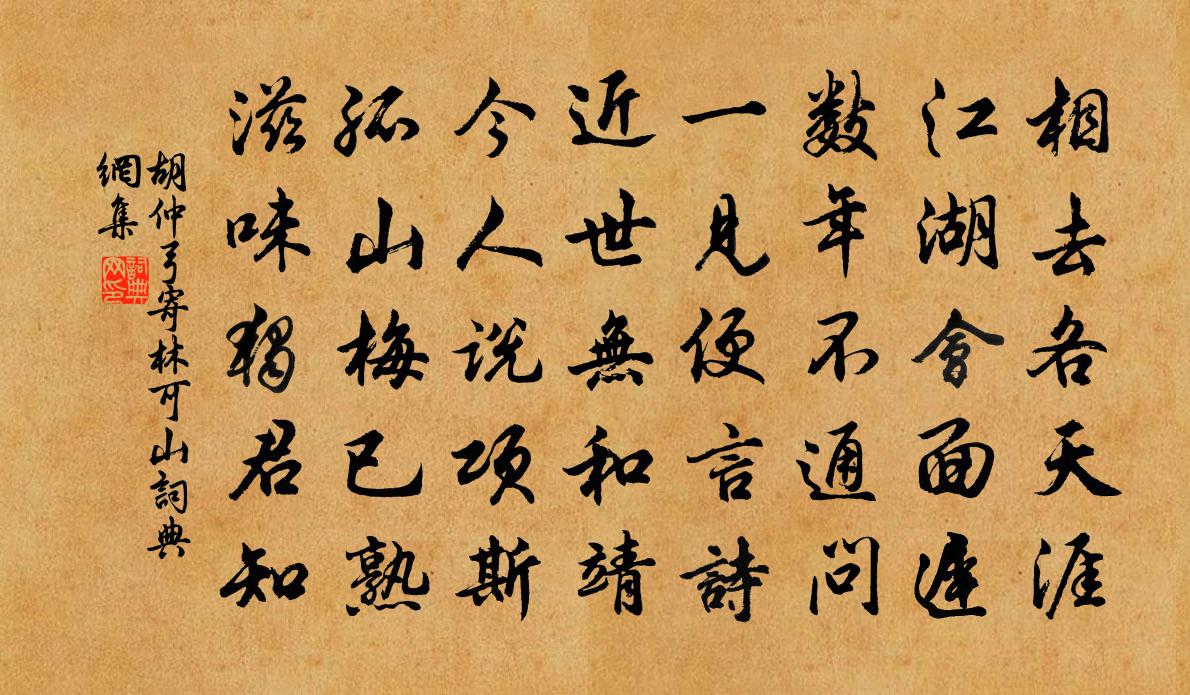 相去各天涯
江湖會面遲
数年不通問
一見便言詩
近世無和靖
今人說項斯
孤山梅已熟
滋味獨君知
胡仲弓寄林可山詞典
網集
詞典
网印